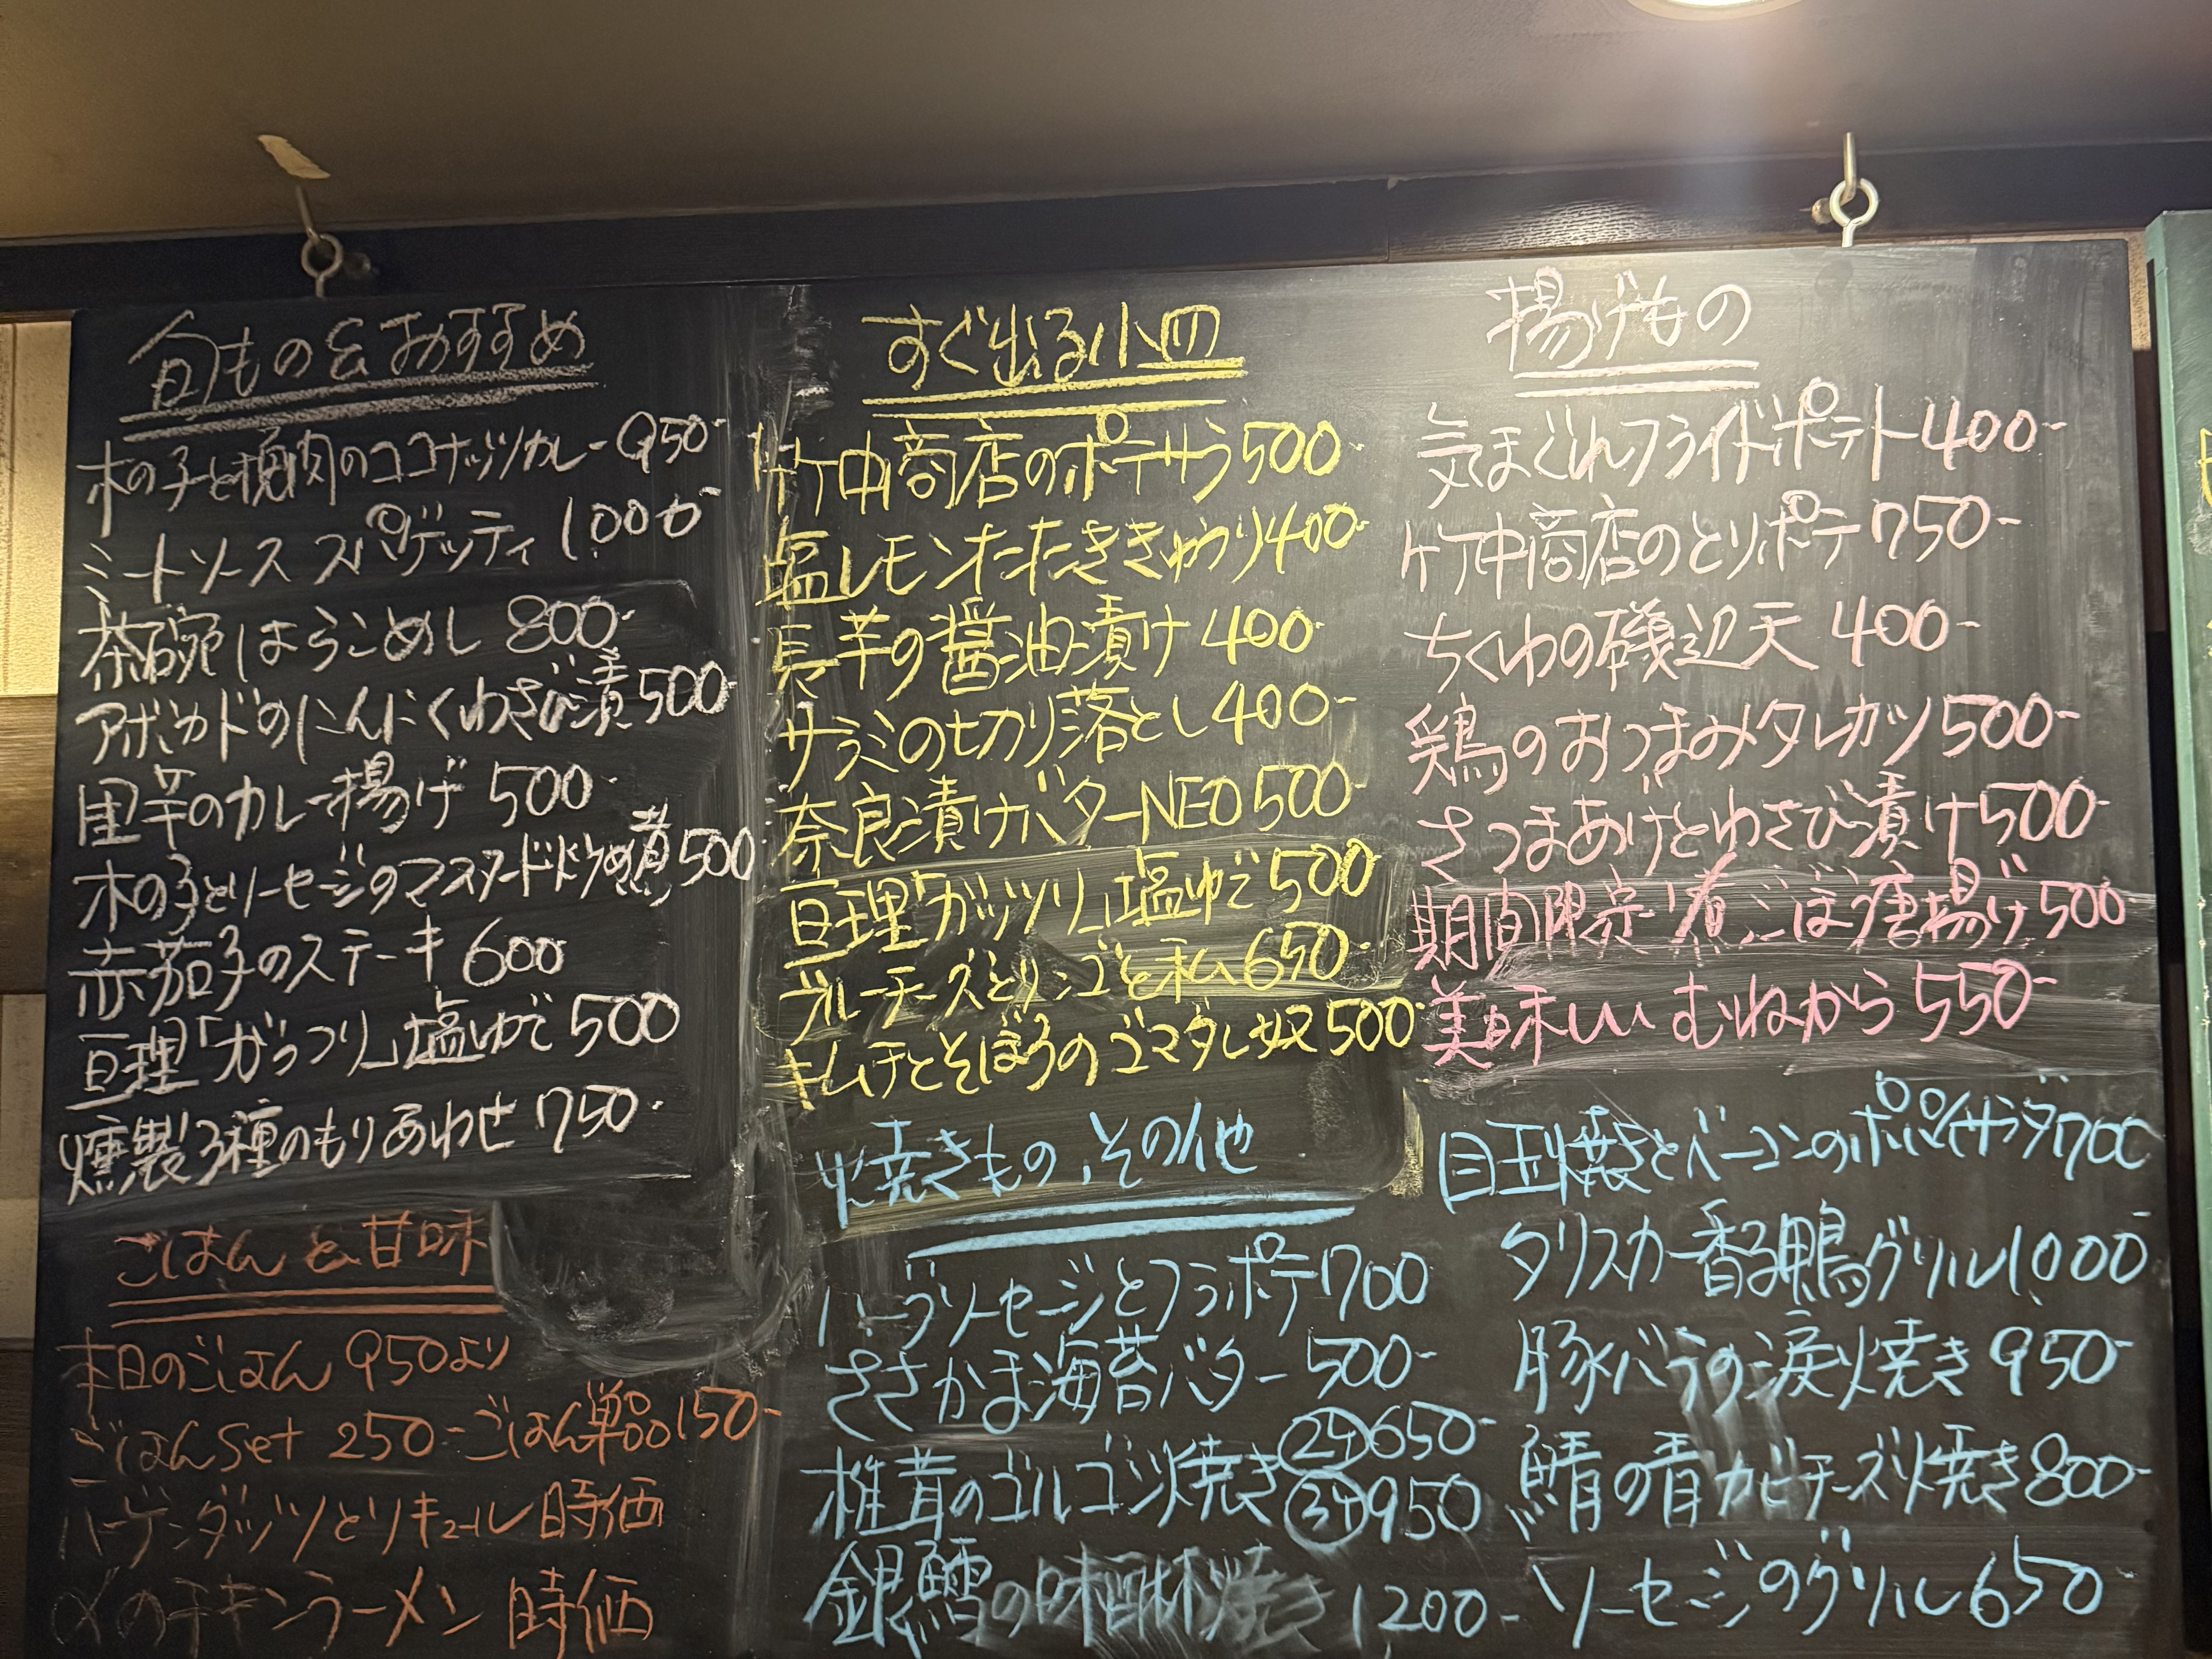 旬もの&おすすめ
木の子と挽肉のココナッツカレー 950-
ミートソース スパゲッティ 1,000-
茶碗はらこめし 800-
アボカドのにんにくわさび漬 500-
里芋のカレー揚げ 500-
木の子とソーセージのマスタードクリーム煮 500-
赤茄子のステーキ 600
亘理「がっつり」塩ゆで 500
燻製3種のもりあわせ 750-
ごはん&甘味
本日のごはん 950より
ごはんset 250- ごはん単品150-
ハーゲンダッツとリキュール 時価
〆のチキンラーメン 時価
すぐ出る小皿
竹中商店のポテサラ500-
塩レモンたたききゅうり400-
長芋の醤油漬け 400-
サラミの切り落とし400-
奈良漬けバターNEO 500-
亘理「ガッツリ」塩ゆで500
ブルーチーズとリンゴと私 650-
キムチとそぼろのゴマダレ奴 500-
揚げもの
気まぐれフライドポテト400-
竹中商店のとりポテ750-
ちくわの磯辺天 400-
鶏のおつまみタレカツ500-
さつまあげとわさび漬け500-
期間限定!煮ごぼう唐揚げ500-
美味しい むねから 550-
焼きもの、その他
ハーブソーセージとフラポテ700
ささかま海苔バター 500-
椎茸のゴルゴンゾ焼き ②ケ650-
③ケ950
銀鱈の味醂焼き 1200-
目玉焼きとベーコンのポパイサラダ700-
タリスカー香る鴨グリル1,000-
豚バラの涙焼き 950-
鯖の青カビチーズ焼き800-
ソーセージのグリル650